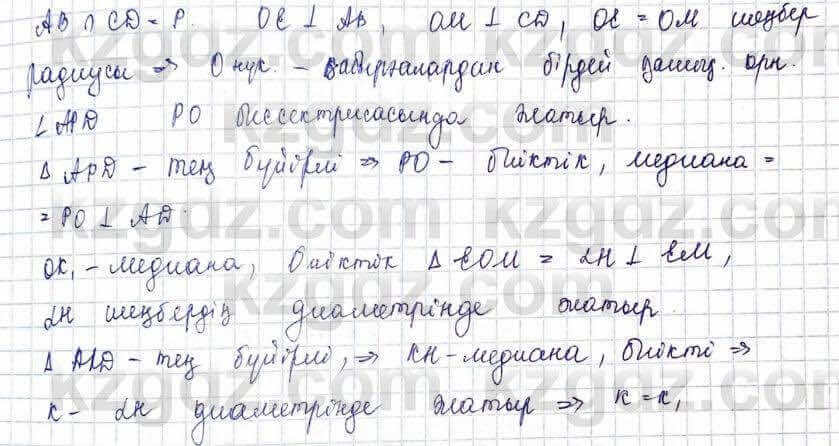 AB ∩ CD = P. OE ⊥ AB, OM ⊥ CD, OE = OM шеңбер
радиусы => O нүк. – қабырғалардан бірдей қашық. орн.
∠ APD PO биссектрисасында жатыр.
△ APD – тең бүйірлі => PO – биіктік, медиана =
= PO ⊥ AD.
OK₁ – медиана, биіктік △ EOM = LH ⊥ EM,
LH шеңбердің диаметрінде жатыр
△ ALD – тең бүйірлі, => KH – медиана, биікті =>
K – LH диаметрінде жатыр => K = K₁
kzgdz.com